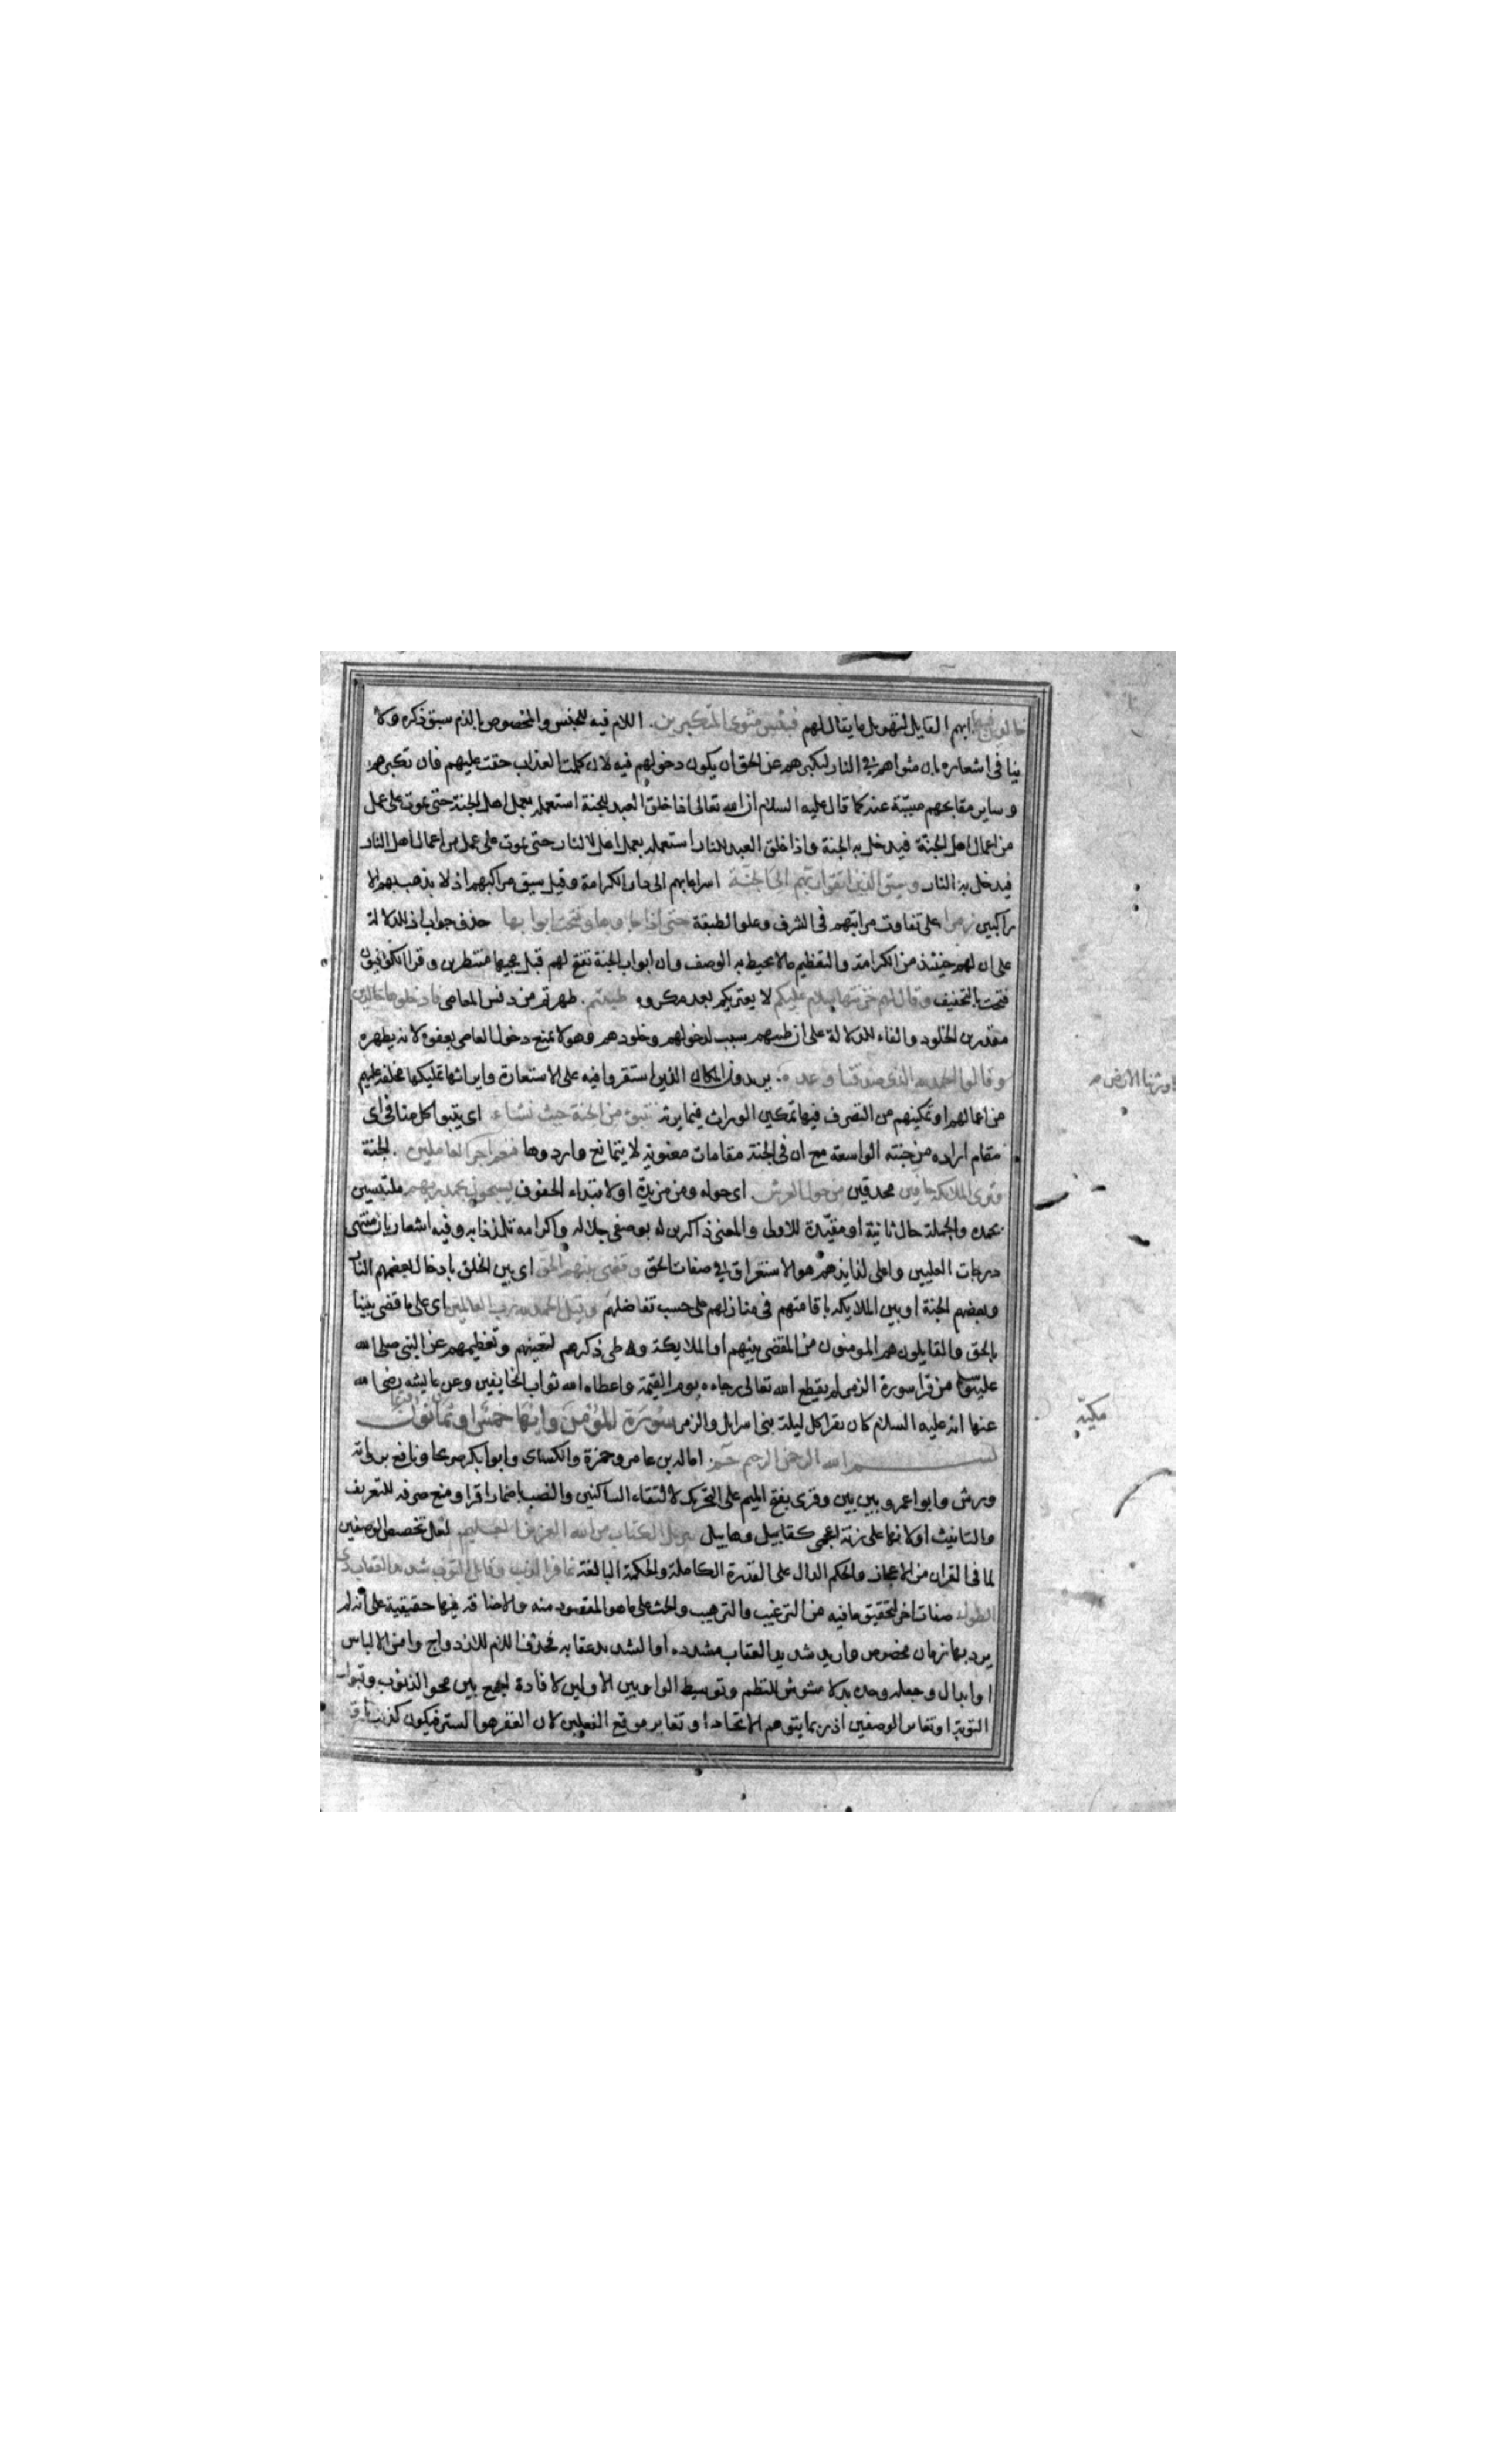 خالدين فيها ابهم القايل لتهويل ما يقال لهم فبئس مثوى المتكبرين. اللام فيه للجنس والمخصوص بالذم سبق ذكره ولا
ينافى اشعاره بان مثواهم في النار لتكبرهم عن الحق ان يكون دخولهم فيه لان كلمت العذاب حقت عليهم فان تكبرهم
وساير مقابحهم مسببة عنه كما قال عليه السلام ان الله تعالى اذا خلق العبد للجنة استعمله بعمل اهل الجنة حتى يموت على عمل
من اعمال اهل الجنة فيدخل به الجنة واذا خلق العبد للنار استعمله بعمل اهل النار حتى يموت على عمل من اعمال اهل النار
فيدخل به النار وسيق الذين اتقوا ربهم الى الجنة اسراعا بهم الى دار الكرامة وقيل سيق مراكبهم اذ لا يذهب بهم الا
راكبين زمرا على تفاوت مراتبهم فى الشرف وعلو الطبقة حتى اذا جاوها وفتحت ابوابها حذف جواب اذا للدلالة
على ان لهم حينئذ من الكرامة والتعظيم ما لا يحيط به الوصف وان ابواب الجنة تفتح لهم قبل مجيها منتظرين وقرا الكوفيون
فتحت بالتخفيف وقال لهم خزنتها سلام عليكم لا يعتريكم بعد مكروه طبتم. طهرتم من دنس المعاصى فادخلوها خالدين
مقدرين الخلود والفاء للدلالة على ان طيبهم سبب لدخولهم وخلودهم وهو لا يمنع دخول العاصى بعفوه لانه يطهره
وقالوا الحمد لله الذى صدقنا وعده. يريدون المكان الذين استقروا فيه على الاستعارة وايراثها تمليكها مخلفة عليهم
واورثنا الارض
من اعمالهم او تمكينهم من التصرف فيها تمكين الوراث فيما يرثه نتبوء من الجنة حيث نشاء اى يتبوا كل منا فى اى
مقام اراده من جنته الواسعة مع ان فى الجنة مقامات معنوية لا يتمانع واردوها فنعم اجر العاملين. الجنة
وترى الملايكة حافين محدقين من حول العرش. اى حوله ومن مزيدة او لابتداء الحفوف يسبحون بحمد ربهم ملتبسين
بحمده والجملة حال ثانية او مقيدة للاولى والمعنى ذاكرين له بوصفى جلاله واكرامه تلذذا به وفيه اشعار بان منتهى
درجات العليين واعلى لذايذهم هو الاستغراق في صفات الحق وقضى بينهم بالحق اى بين الخلق بادخال بعضهم النار
وبعضهم الجنة او بين الملايكة باقامتهم فى منازلهم على حسب تفاضلهم وقيل الحمد لله رب العالمين اى على ما قضى بيننا
بالحق والقايلون هم المومنون من المقضى بينهم او الملايكة وطى ذكرهم لتعينهم وتعظيمهم عن النبى صلى الله
من قرا سورة الزمر لم يقطع الله تعالى رجاءه يوم القيمة واعطاه الله ثواب الخايفين وعن عايشه رضى الله
عنها انه عليه السلام كان يقرا كل ليلة بنى اسرايل والزمر سورة المؤمن وايها خمس او ثمانون
مكية
بسم الله الرحمن الرحيم حم. اماله بن عامر وحمزة والكساى وابو بكر صريحا ونافع برواية
ورش وابو عمرو بين بين وقرى بفتح الميم على التحريك لالتقاء الساكنين والنصب باضمار اقرا ومنع صرفه للتعريف
والتانيث او لانها على زنة اعجمى كقابيل وهابيل تنزيل الكتاب من الله العزيز العليم لعل تخصيص الوصفين
لما فى القران من الاعجاز والحكم الدال على القدرة الكاملة والحكمة البالغة غافر الذنب وقابل التوب شديد العقاب ذى
الطول صفات اخر لتحقيق ما فيه من الترغيب والترهيب والحث على ما هو المقصود منه والاضافة فيها حقيقية على انه لم
يرد بها زمان مخصوص واريد بشديد العقاب مشدده او الشديد عقابه فحذف اللام للازدواج وامن الالباس
او ابدال وجعله وحده بدلا مشوش للنظم وتوسيط الواو بين الاولين لافادة الجمع بين محو الذنوب وقبول
التوبة او تغاير الوصفين اذ ربما يتوهم الاتحاد او تغاير موقع الفعلين لان الغفر هو الستر فيكون لذنب باق